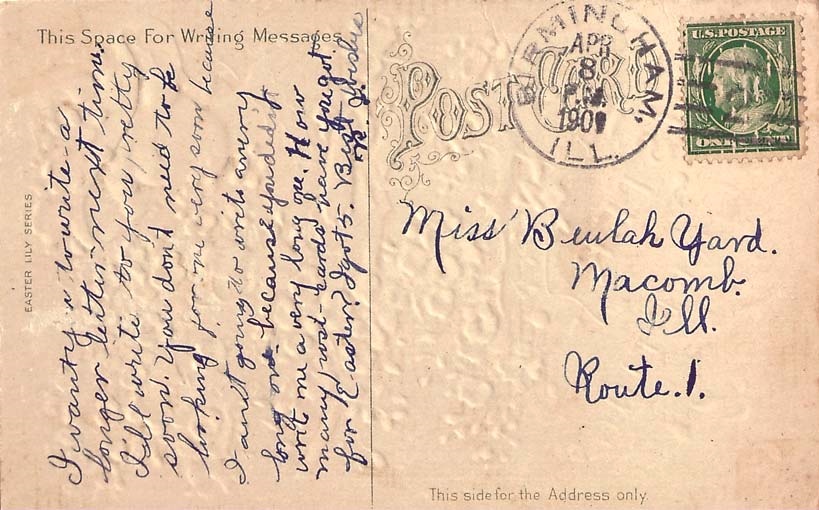 This Space For Writing Messages
EASTER LILY SERIES
I want u to write a
longer letter next time.
I'll write to you pretty
soon. You don't need to be
looking for me very soon because
I aint going to write a very
long one because you didn't
write me a very long one. How
many post-cards have you got
for Easter? I got 5. Best wishes
POST CARD
BIRMINGHAM,
APR
8
P.M.
190
ILL.
U.S. POSTAGE
ONE CENT
Miss Beulah Yard.
Macomb.
Ill.
Route.1.
This side for the Address only.